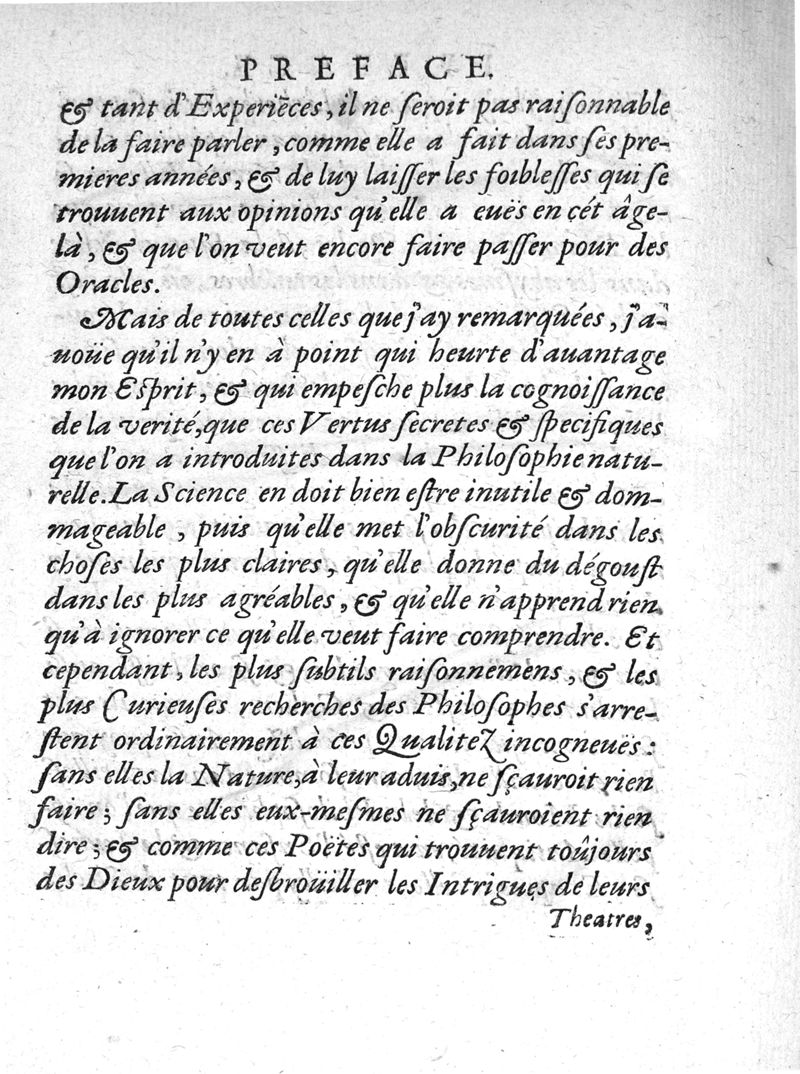 PREFACE.
& tant d'Experiēces, il ne ſeroit pas raiſonnable
de la faire parler, comme elle a fait dans ſes pre-
mieres années, & de luy laiſſer les foibleſſes qui ſe
trouuent aux opinions qu'elle a euës en cét âge-
là, & que l'on veut encore faire paſſer pour des
Oracles.
Mais de toutes celles que j'ay remarquées, j'a-
uoüe qu'il n'y en à point qui heurte d'auantage
mon Eſprit, & qui empeſche plus la cognoiſſance
de la verité, que ces Vertus ſecretes & ſpecifiques
que l'on a introduites dans la Philoſophie natu-
relle. La Science en doit bien eſtre inutile & dom-
mageable, puis qu'elle met l'obſcurité dans les
choſes les plus claires, qu'elle donne du dégouſt
dans les plus agréables, & qu'elle n'apprend rien
qu'à ignorer ce qu'elle veut faire comprendre. Et
cependant, les plus ſubtils raiſonnemens, & les
plus Curieuſes recherches des Philoſophes s'arre-
ſtent ordinairement à ces Qualitez incogneuës:
ſans elles la Nature, à leur aduis, ne ſçauroit rien
faire; ſans elles eux-meſmes ne ſçauroient rien
dire; & comme ces Poëtes qui trouuent toûjours
des Dieux pour deſbroüiller les Intrigues de leurs
Theatres,